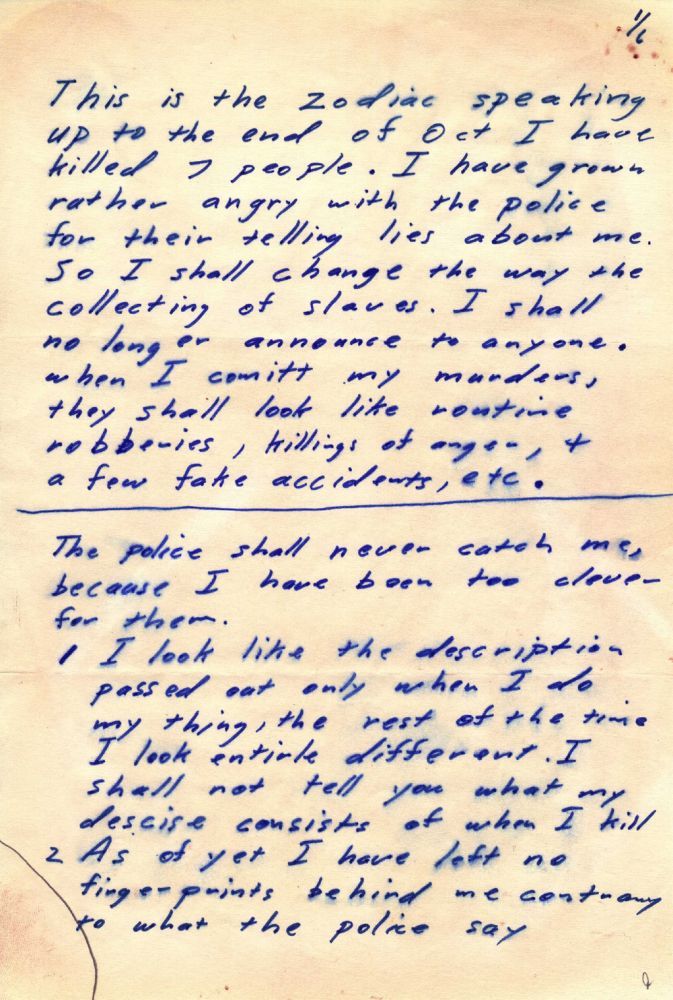 1/6
This is the Zodiac speaking
up to the end of Oct I have
killed 7 people. I have grown
rather angry with the police
for their telling lies about me.
So I shall change the way the
collecting of slaves. I shall
no longer announce to anyone.
when I comitt my murders,
they shall look like routine
robberies, killings of anger, +
a few fake accidents, etc.
The police shall never catch me,
because I have been too clever
for them.
1 I look like the description
passed out only when I do
my thing, the rest of the time
I look entirle different. I
shall not tell you what my
descise consists of when I kill
2 As of yet I have left no
fingerprints behind me contrary
to what the police say